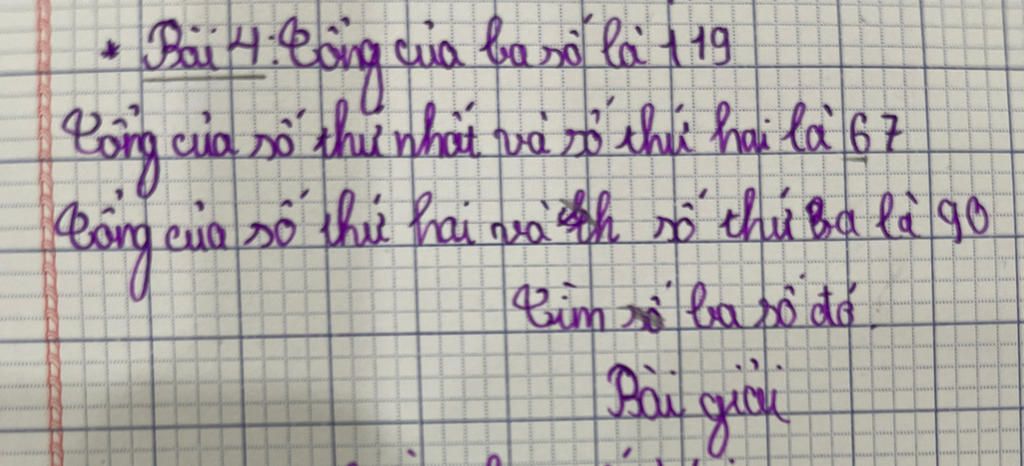 * Bài 4: Tổng của ba số là 119
Tổng của số thứ nhất và số thứ hai là 67
Tổng của số thứ hai và số thứ Ba là 90
Tìm ba số đó.
Bài giải